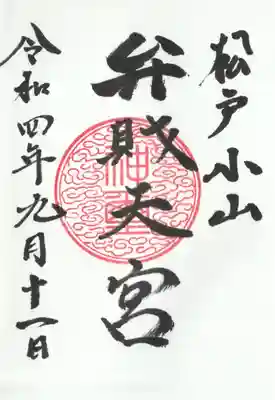 松戸小山
弁財天宮
令和四年九月十一日